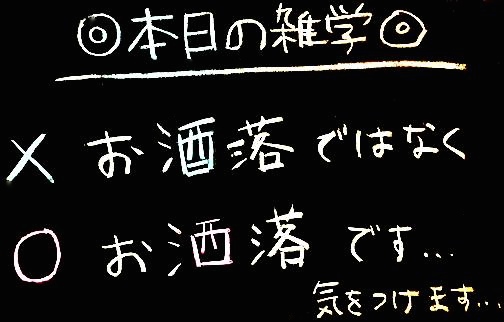 ◎本日の雑学◎
× お酒落ではなく
○ お洒落です...
気をつけます...